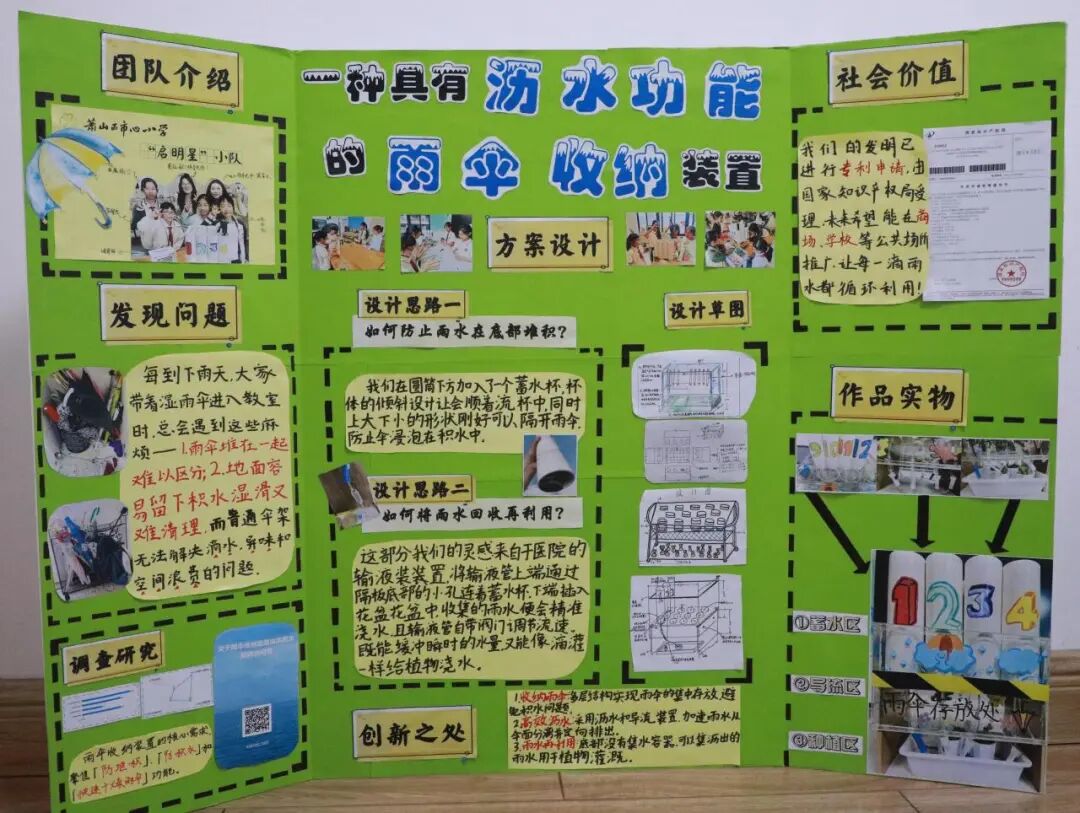 一种具有沥水功能
的雨伞收纳装置
团队介绍
萧山区市心小学
"启明星"小队
发现问题
每到下雨天,大家
带着湿雨伞进入教室
时,总会遇到这些麻
烦——1.雨伞堆在一起
难以区分;2.地面容
易留下积水湿滑又
难清理,而普通伞架
无法解决滴水、异味和
空间浪费的问题.
调查研究
雨伞收纳装置的核心需求
聚焦「防堆积」、「防积水」和
「快速干燥雨伞」功能。
方案设计
设计思路一
如何防止雨水在底部堆积?
我们在圆筒下方加入了个蓄水杯,杯
体的倾斜设计让会顺着流杯中,同时
上大下小的形状刚好可以隔开雨伞,
防止伞浸泡在积水中.
设计思路二
如何将雨水回收再利用?
这部分我们的灵感来自于医院的
输液装装置,将输液管上端通过
隔板底部的小孔连着蓄水杯,下端插入
花盆花盆中收集的雨水便会精准
浇水,且输液管自带阀门调节流速,
既能缓冲瞬时的水量又能像滴灌
一样给植物浇水。
设计草图
设计图
创新之处
1.收纳雨伞:多层结构实现雨伞的集中存放,避
免积水问题.
2.高效沥水:采用沥水和导流装置,加速雨水从
伞面分离并定向排出.
3.雨水再利用:底部设有集水容器,可以集沥出的
雨水用于植物灌溉。
社会价值
我们的发明已
进行专利申请,由
国家知识产权局受
理,未来希望能在商
场、学校等公共场所
推广,让每一滴雨
水都循环利用!
国家知识产权局
作品实物
①蓄水区
②导流区
③种植区
1 2 3 4
雨伞存放处